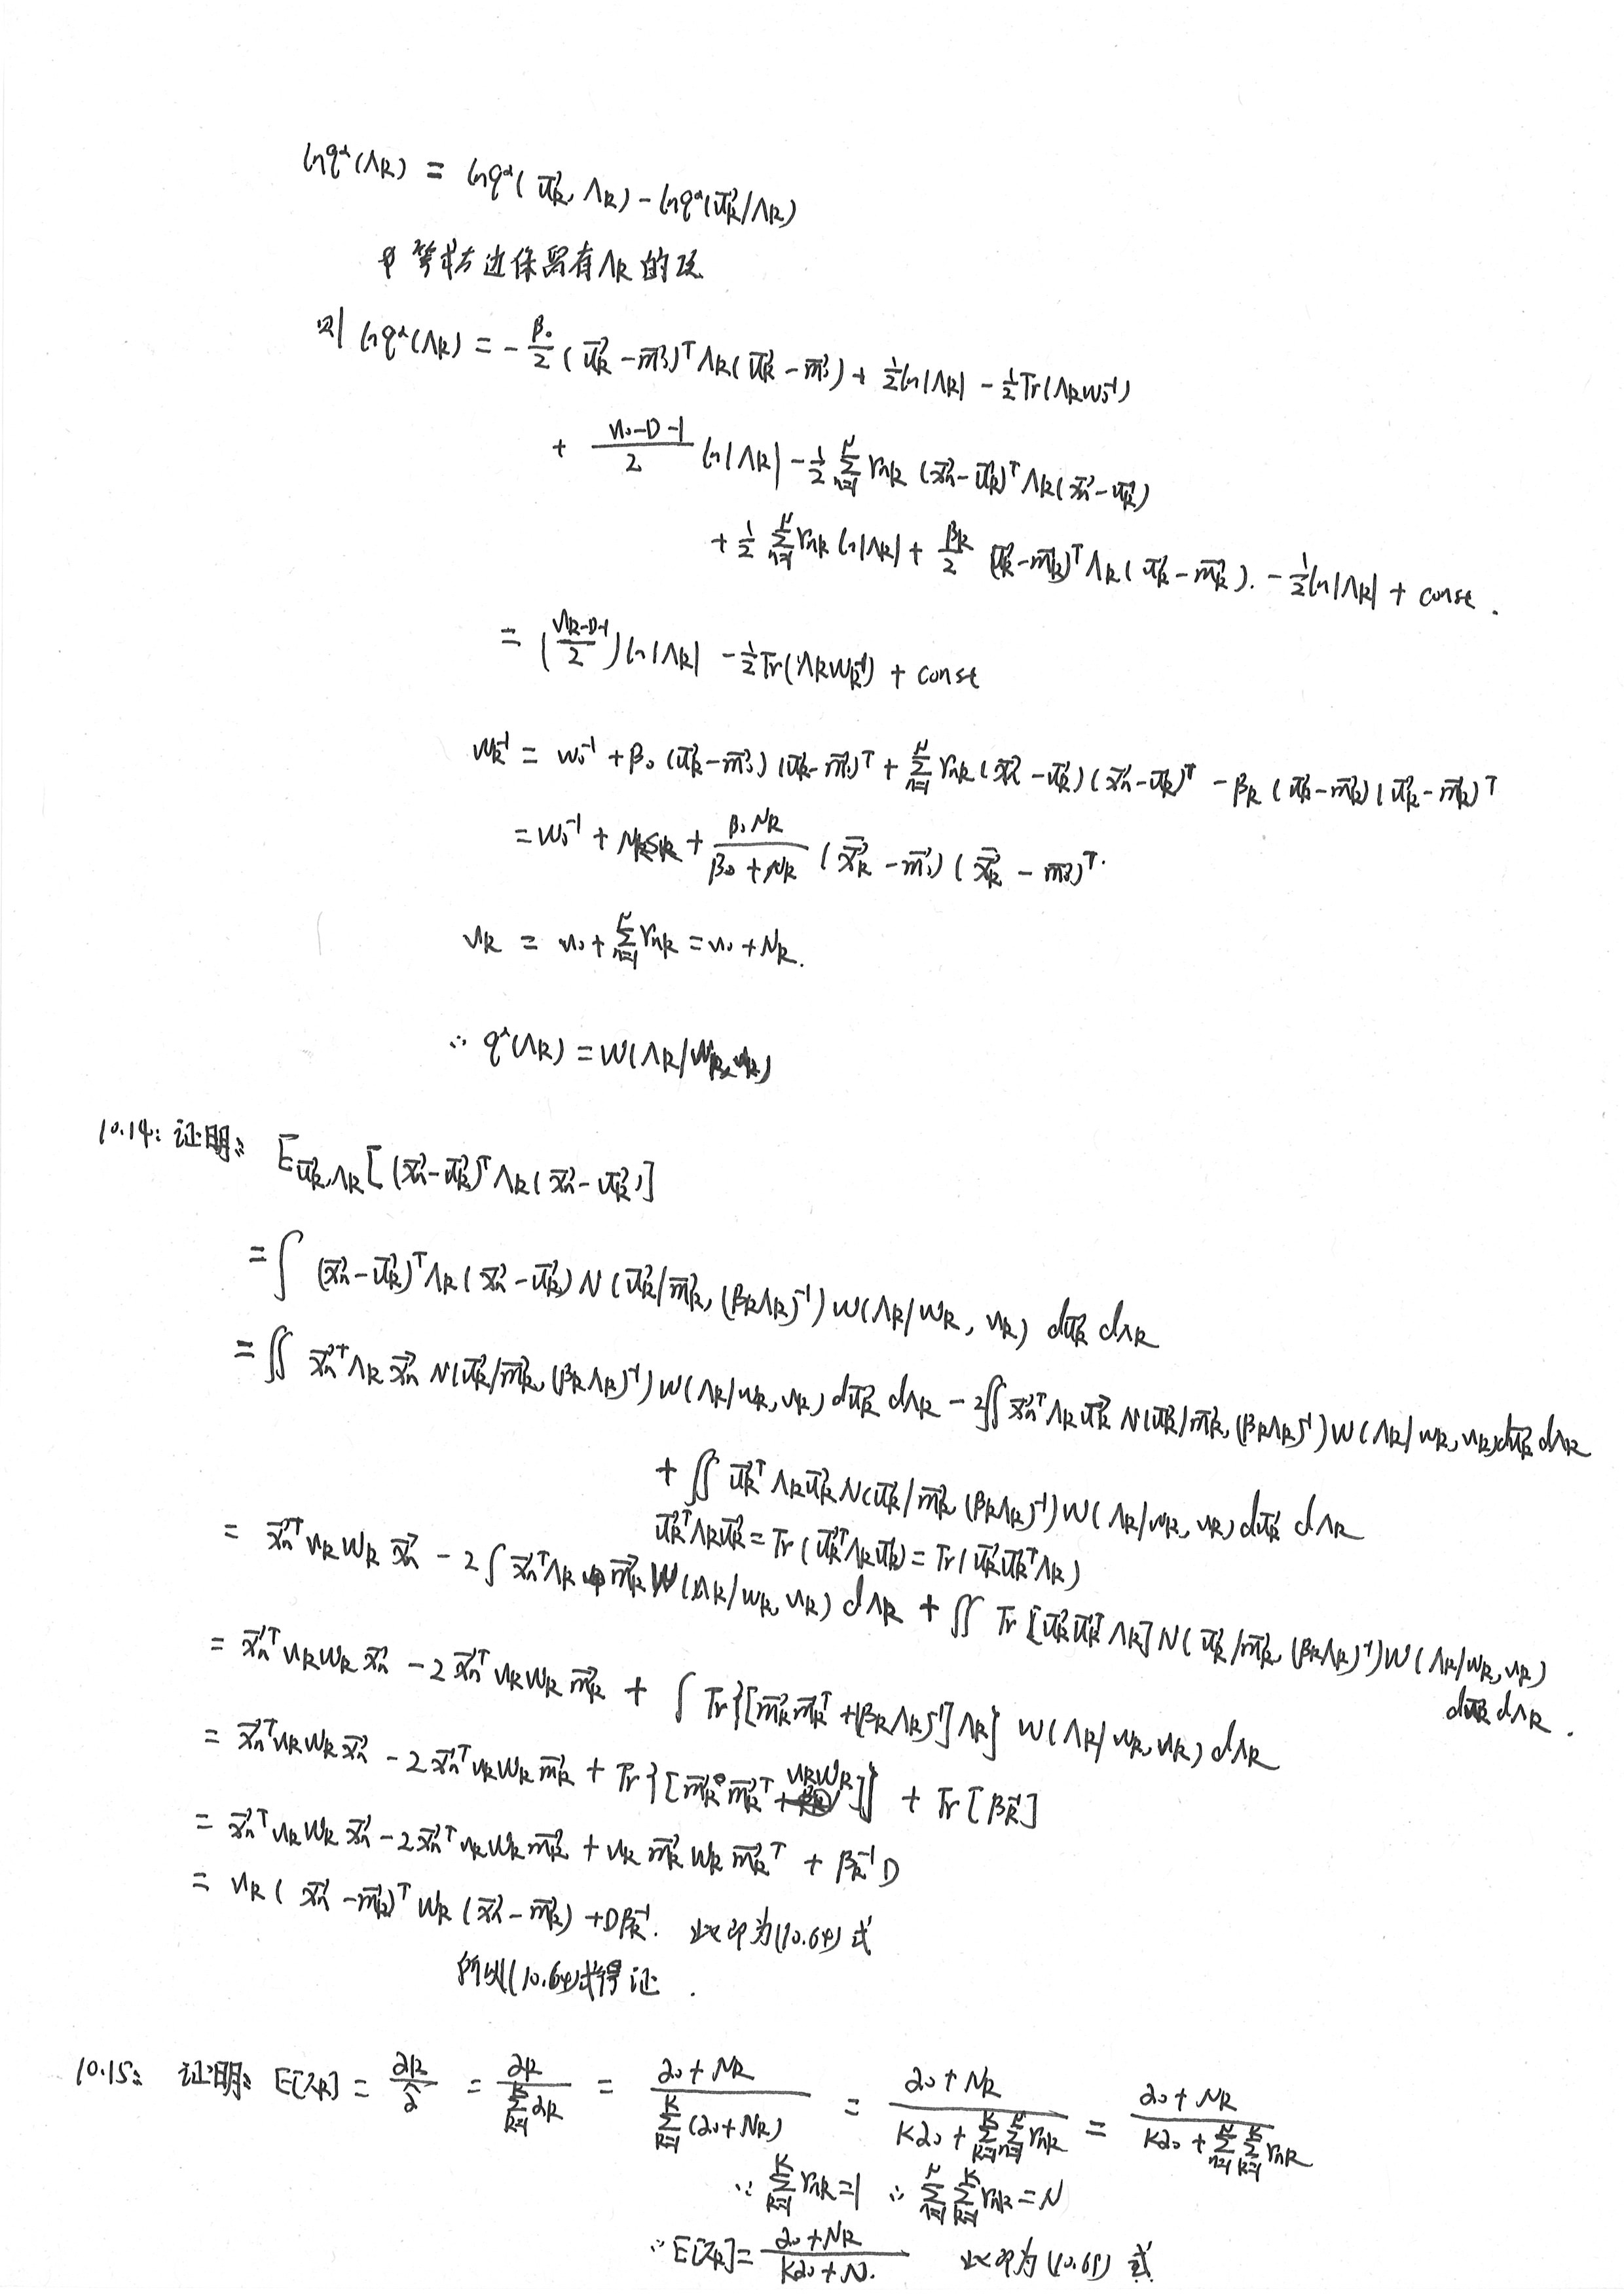 lnq*(Λk) = lnq*(μ⃗k, Λk) - lnq*(μ⃗k/Λk)
等式右边保留有Λk的项
则 lnq*(Λk) = - β₀/2 (μ⃗k - m⃗₀)ᵀ Λk (μ⃗k - m⃗₀) + ½ln|Λk| - ½Tr(Λk W₀⁻¹)
+ (ν₀-D-1)/2 ln|Λk| - ½ Σₙ₌₁ᴺ rnk (x⃗n - μ⃗k)ᵀ Λk (x⃗n - μ⃗k)
+ ½ Σₙ₌₁ᴺ rnk ln|Λk| + βk/2 (μ⃗k - m⃗k)ᵀ Λk (μ⃗k - m⃗k). - ½ln|Λk| + const.
= ((νk-D-1)/2) ln|Λk| - ½Tr(Λk Wk⁻¹) + const
Wk⁻¹ = W₀⁻¹ + β₀ (μ⃗k - m⃗₀)(μ⃗k - m⃗₀)ᵀ + Σₙ₌₁ᴺ rnk (x⃗n - μ⃗k)(x⃗n - μ⃗k)ᵀ - βk (μ⃗k - m⃗k)(μ⃗k - m⃗k)ᵀ
= W₀⁻¹ + NkSk + β₀Nk/(β₀ + Nk) (x̄⃗k - m⃗₀)(x̄⃗k - m⃗₀)ᵀ.
νk = ν₀ + Σₙ₌₁ᴺ rnk = ν₀ + Nk.
∴ q*(Λk) = W(Λk/Wk, νk)
10.14: 证明: E_{μ⃗k,Λk}[(x⃗n - μ⃗k)ᵀ Λk (x⃗n - μ⃗k)]
= ∫ (x⃗n - μ⃗k)ᵀ Λk (x⃗n - μ⃗k) N(μ⃗k/m⃗k, (βkΛk)⁻¹) W(Λk/Wk, νk) dμ⃗k dΛk
= ∬ x⃗nᵀ Λk x⃗n N(μ⃗k/m⃗k, (βkΛk)⁻¹) W(Λk/Wk, νk) dμ⃗k dΛk - 2∬ x⃗nᵀ Λk μ⃗k N(μ⃗k/m⃗k, (βkΛk)⁻¹) W(Λk/Wk, νk) dμ⃗k dΛk
+ ∬ μ⃗kᵀ Λk μ⃗k N(μ⃗k/m⃗k, (βkΛk)⁻¹) W(Λk/Wk, νk) dμ⃗k dΛk
μ⃗kᵀΛkμ⃗k = Tr(μ⃗kᵀΛkμ⃗k) = Tr(μ⃗kμ⃗kᵀΛk)
= x⃗nᵀ νk Wk x⃗n - 2∫ x⃗nᵀ Λk m⃗k W(Λk/Wk, νk) dΛk + ∬ Tr[μ⃗kμ⃗kᵀ Λk] N(μ⃗k/m⃗k, (βkΛk)⁻¹) W(Λk/Wk, νk)
dμ⃗k dΛk.
= x⃗nᵀ νk Wk x⃗n - 2x⃗nᵀ νk Wk m⃗k + ∫ Tr{[m⃗k m⃗kᵀ + (βkΛk)⁻¹] Λk} W(Λk/Wk, νk) dΛk
= x⃗nᵀ νk Wk x⃗n - 2x⃗nᵀ νk Wk m⃗k + Tr{[m⃗k m⃗kᵀ νkWk]} + Tr[βk⁻¹]
= x⃗nᵀ νk Wk x⃗n - 2x⃗nᵀ νk Wk m⃗k + νk m⃗k Wk m⃗kᵀ + βk⁻¹D
= νk (x⃗n - m⃗k)ᵀ Wk (x⃗n - m⃗k) + Dβk⁻¹. 此即为(10.64)式
所以(10.64)式得证.
10.15: 证明: E[πk] = αk/α̂ = αk/Σₖ₌₁ᴷ αk = (α₀ + Nk)/Σₖ₌₁ᴷ(α₀ + Nk) = (α₀ + Nk)/(Kα₀ + Σₖ₌₁ᴷ Σₙ₌₁ᴺ rnk) = (α₀ + Nk)/(Kα₀ + Σₙ₌₁ᴺ Σₖ₌₁ᴷ rnk)
∵ Σₖ₌₁ᴷ rnk = 1 ∴ Σₙ₌₁ᴺ Σₖ₌₁ᴷ rnk = N
∴ E[πk] = (α₀ + Nk)/(Kα₀ + N). 此即为(10.69)式